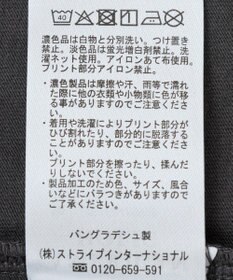 40
濃色品は白物と分別洗い。つけ置き
禁止。淡色品は蛍光増白剤禁止。洗
濯ネット使用。アイロンあて布使用。
プリント部分アイロン禁止。
・濃色製品は摩擦や汗、雨等で濡
れた際に他の衣類や小物類に色が移
る事がありますのでご注意くださ
い。
・着用や洗濯によりプリント部分が
ひび割れたり、部分的に脱落する
ことがありますのでご注意ください。
プリント部分を擦ったり、揉んだ
りしないでください。
・製品加工のため色、サイズ、風合
いなどにバラつきがありますのでご
了承ください。
バングラデシュ製
(株)ストライプインターナショナル
0120-659-591